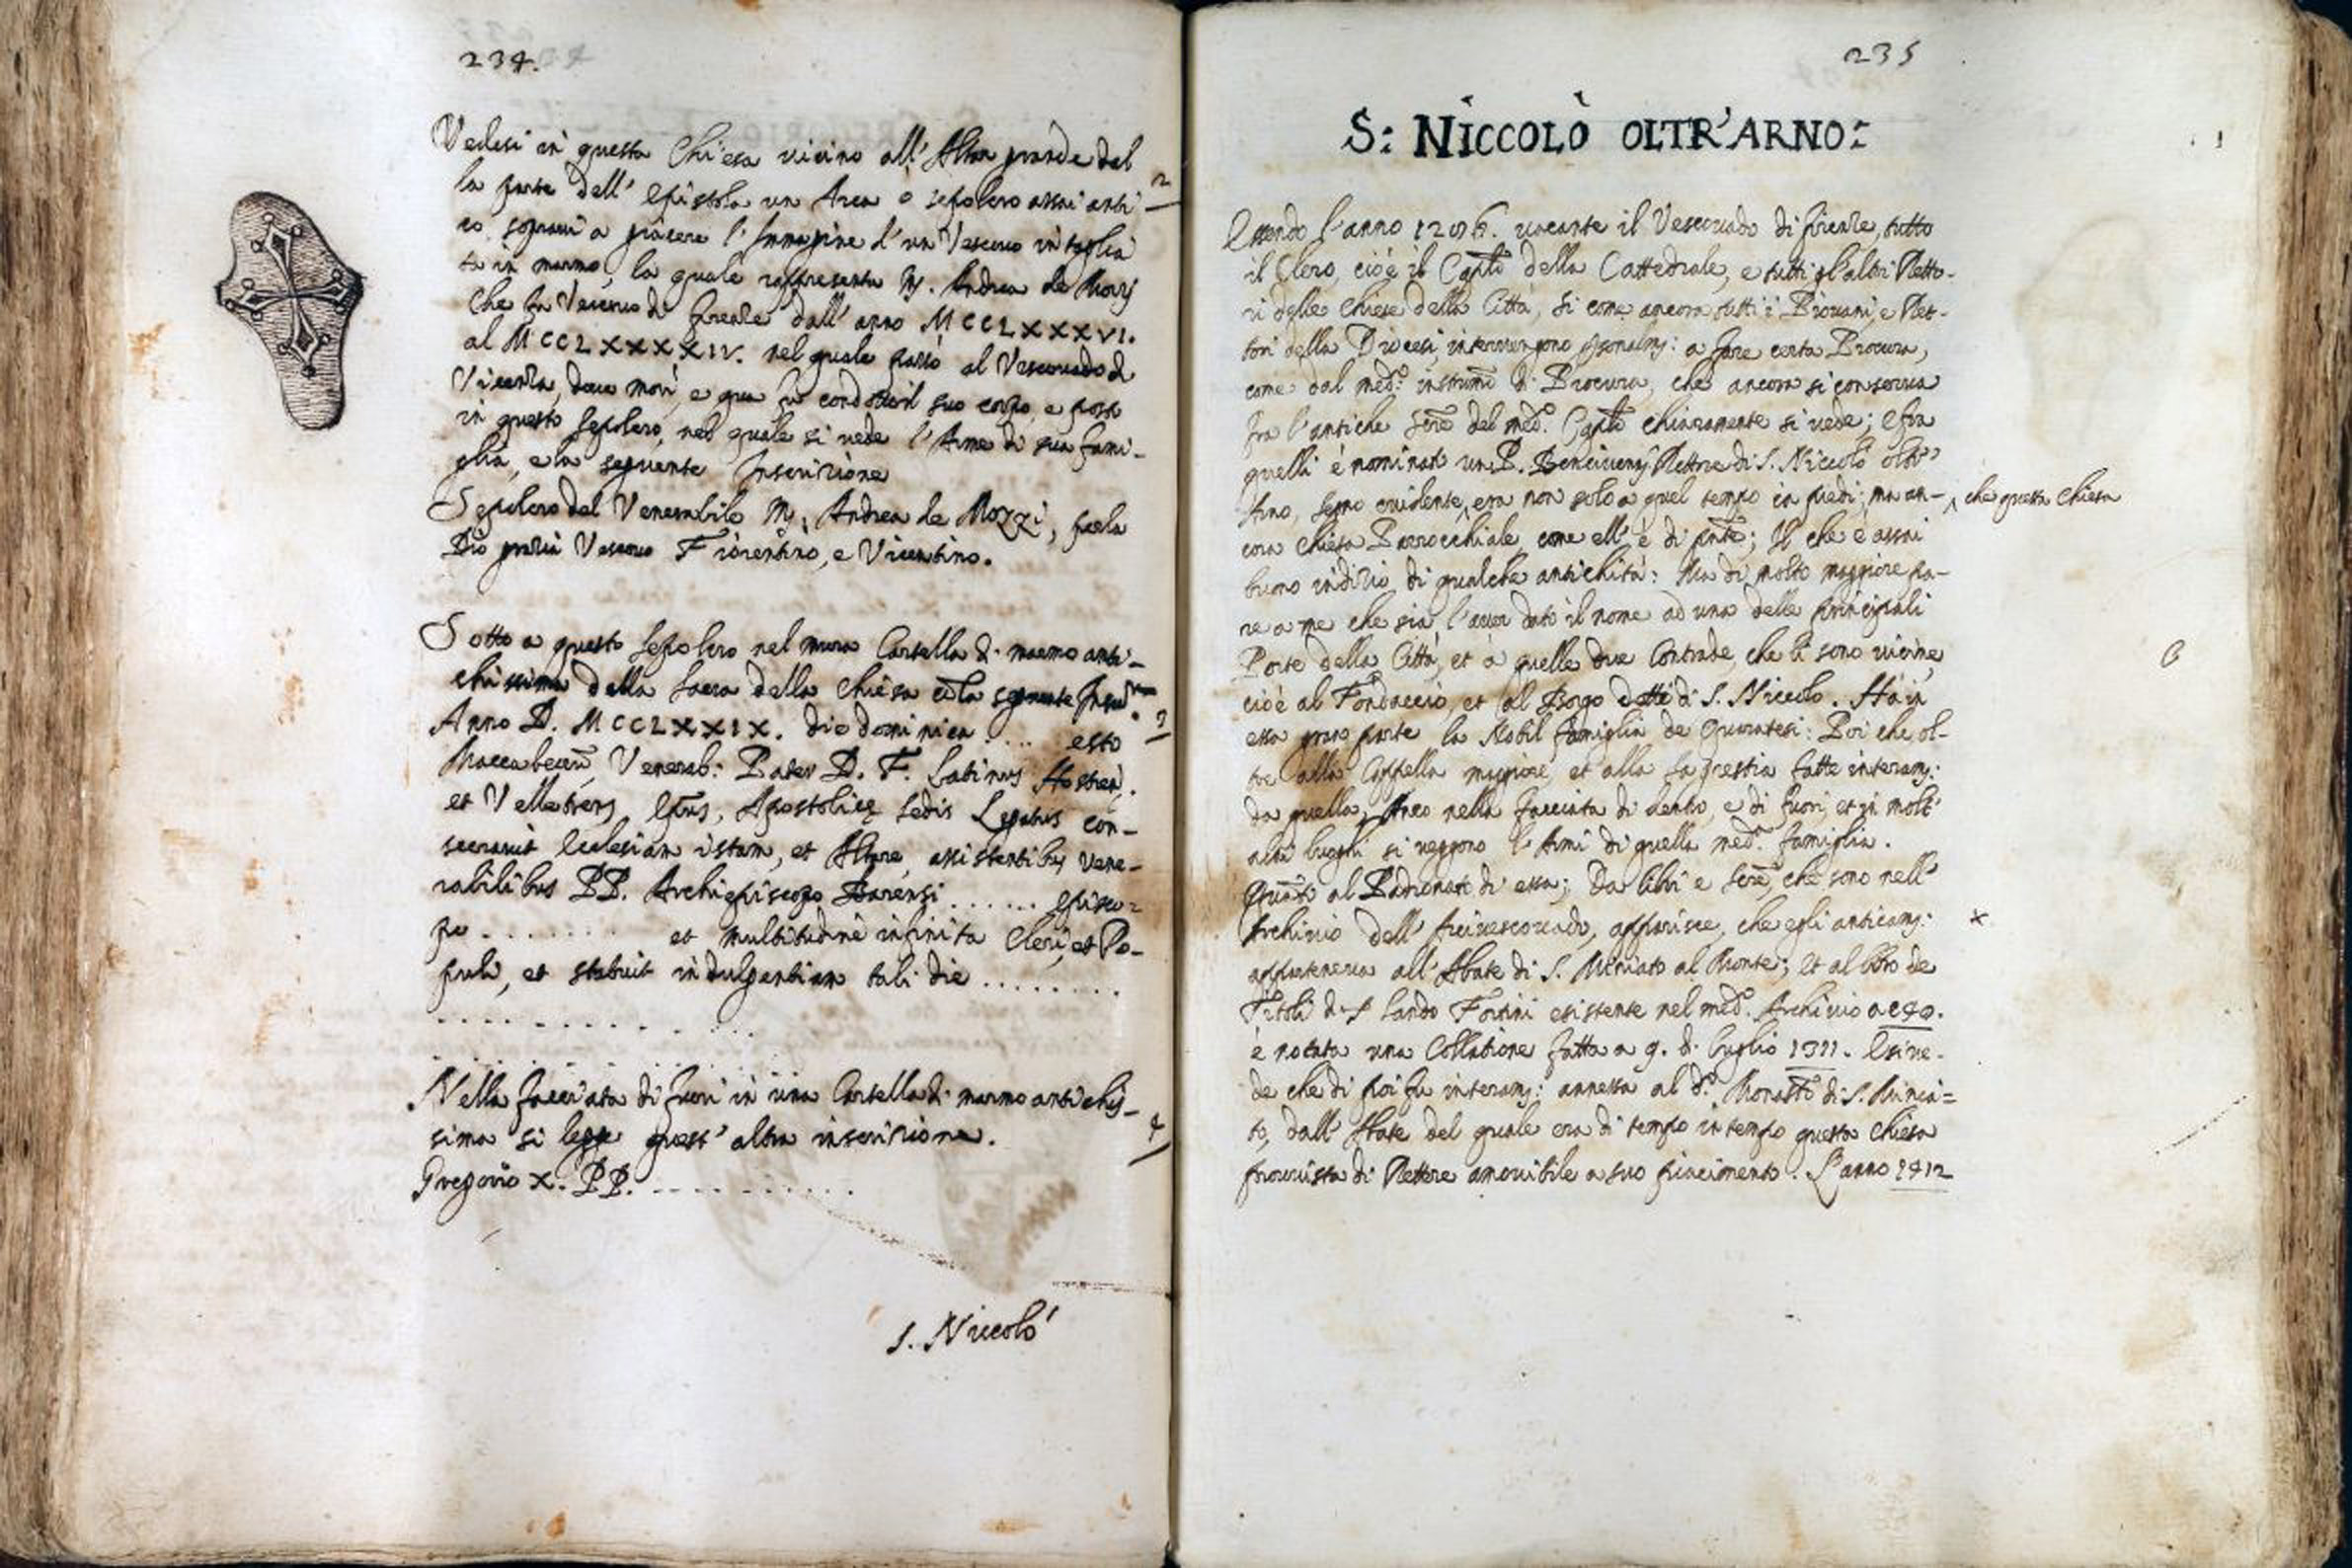 234.
Vedesi in questa Chiesa vicino all' Altar grande dal
la parte dell' Epistola un Arca ò sepolcro assai anti
co, sopravi a giacere l' Immagine d' un Vescovo intaglia
ta in marmo, la quale rappresenta M. Andrea de Mozzi
che fu Vescovo di Firenze dall' anno MCCLXXXVI.
al MCCLXXXXIV. nel quale passò al Vescovado di
Vicenza, dove morì, e qua fu condotto il suo corpo, e posto
in questo sepolcro, nel quale si vede l' Arme di sua fami-
glia, e la seguente Inscrizione
Sepolcro del Venerabile M. Andrea de Mozzi, per la
Dio grazia Vescovo Fiorentino, e Vicentino.
2
Sotto a questo sepolcro nel muro Cartella di marmo anti-
chissima della sacra della Chiesa cō la seguente
Anno D. MCCLXXIX. die dominica .... esto
Maccabeorū, Venerab: Pater D. F. Latinus Hostien.
et Velletrens Epūs, Apostolicę sedis Legatus con-
secravit Ecclesiam istam, et Altare, assistentibus vene-
rabilibus PP. Archiepiscopo Barensi ...... Episco=
po ........ et multitudine infinita Cleri, et Po-
puli, et statuit indulgentiam tali die ........
3
Nella facciata di fuori in una Cartella di marmo antichis-
sima si legge quest' altra inscrizione.
Gregorio X. PP. ...........
4
S. Niccolò
235
S: NICCOLÒ OLTR'ARNO:
Essendo l'anno 1286. vacante il Vescovado di Firenze, tutto
il Clero, cioè il Capīto della Cattedrale, e tutti gl'altri Retto-
ri delle Chiese della Città, si come ancora tutti i Piovani, e Ret-
tori della Diocesi, intervengono a fare certa Procura,
come dal med.º instrumō di Procura, che ancora si conserva
fra l'antiche del med.º Capīto chiaramente si vede; e fra
quelli è nominato un P. Rettore di S. Niccolò oltr'
Arno, segno evidente, ^ era non solo a quel tempo in piedi; ma an- ^ che questa Chiesa
cora Chiesa Parrocchiale, come ell' è di pñte; Il che è assai
buono indizio di qualche antichità: Ma di molto maggiore pa-
re a me che sia l'aver dato il nome ad una delle principali
Porte della Città, et a quelle due Contrade che li sono vicine,
cioè al Fondaccio, et al Borgo detti di S. Niccolò. Hà in
essa gran parte la Nobil famiglia de Quaratesi: Poi che ol-
tre alla Cappella maggiore, et alla sagrestia fatte interam:
da quella, Anco nella facciata di dentro, e di fuori, et in molt'
altri luoghi si veggono l'Armi di quella med.ª famiglia.
Quāto al Padronato di essa; Da libri e che sono nell'
Archivio dell' Arcivescovado, apparisce, che egli anticam: ×
apparteneva all' Abate di S. Miniato al Monte; Et al libro de
Titoli di S Lando Fortini esistente nel med.º Archivio
è notata una Collatione fatta a 9. di luglio 1311. E si ve-
de che di poi fu interam: annessa al d.º Monastº di S. Minia=
to, dall' Abate del quale era di tempo in tempo questa Chiesa
provvista di Rettore amovibile a suo piacimento. L'anno 1412